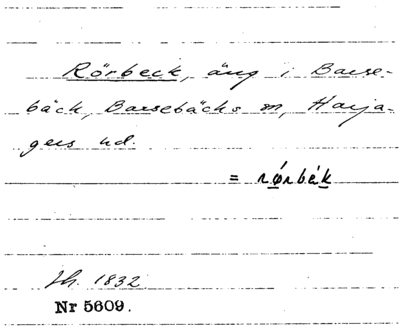 Rörbeck, äng i Barse-
bäck, Barsebäcks sn, Harja-
gers hd.
= rørbæk
1832
Nr 5609.